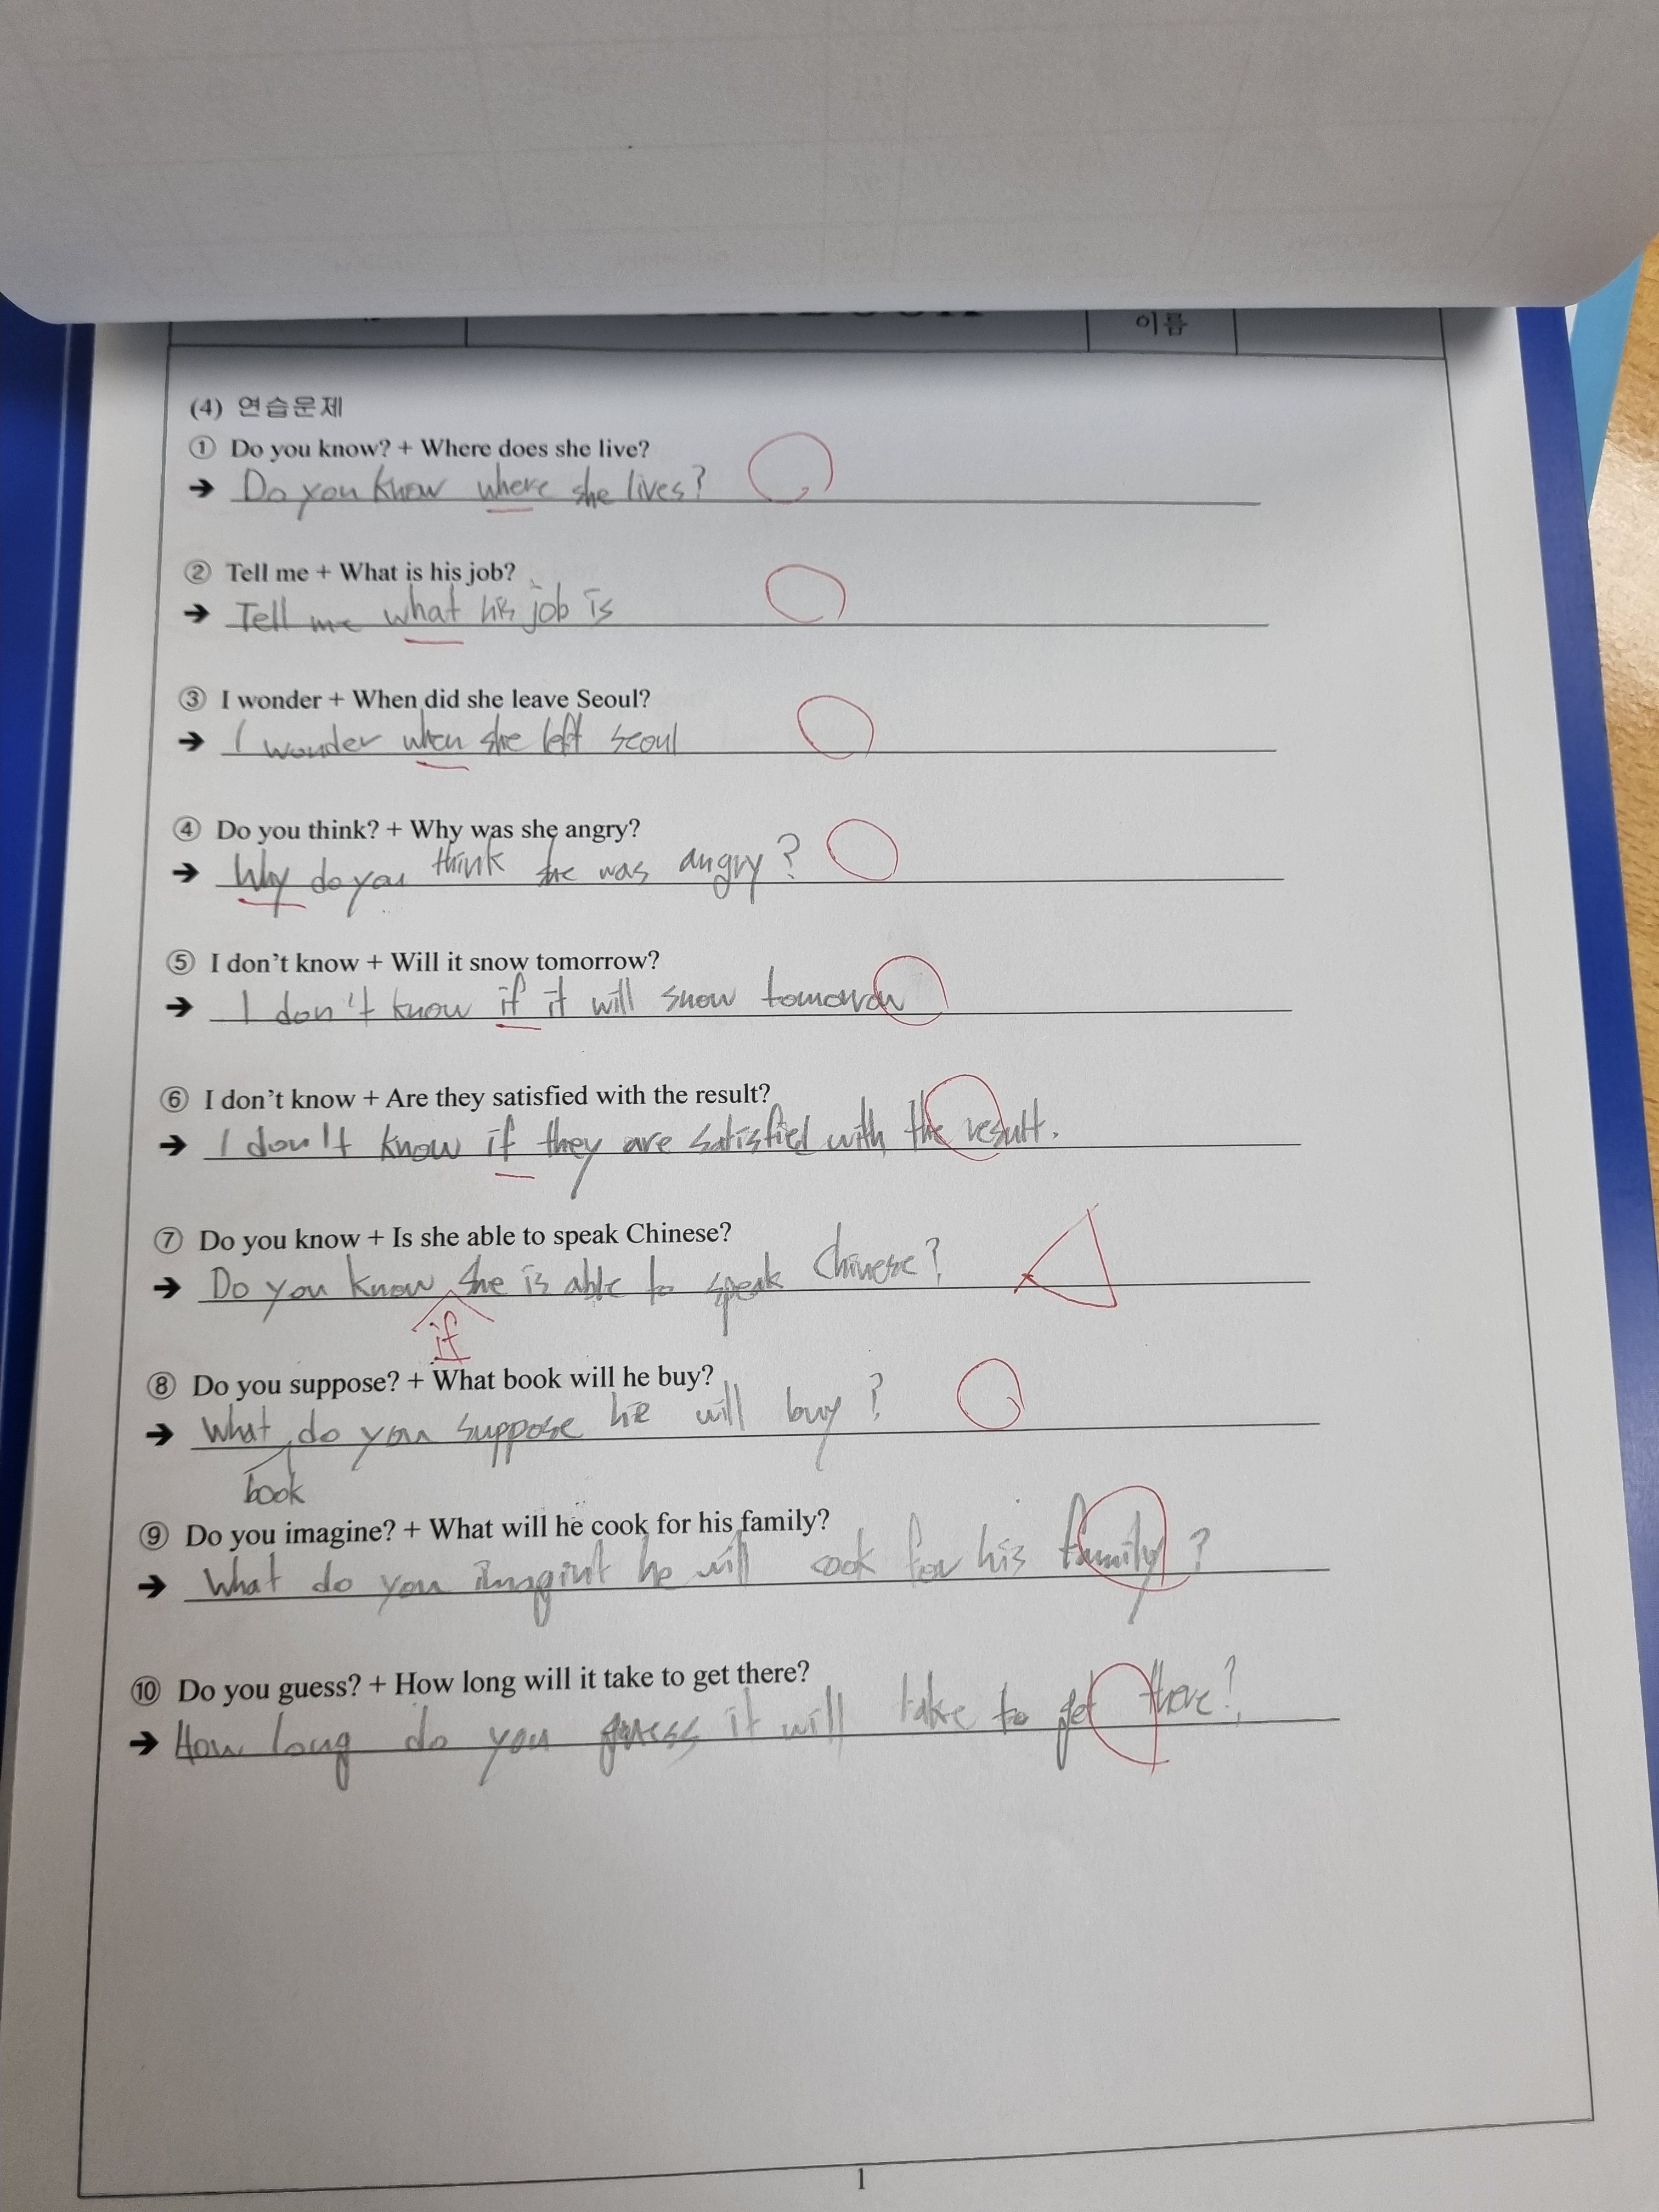 이름
(4) 연습문제
① Do you know? + Where does she live?
→ Do you know where she lives?
② Tell me + What is his job?
→ Tell me what his job is
③ I wonder + When did she leave Seoul?
→ I wonder when she left seoul
④ Do you think? + Why was she angry?
→ Why do you think she was angry?
⑤ I don't know + Will it snow tomorrow?
→ I don't know if it will snow tomorrow
⑥ I don't know + Are they satisfied with the result?
→ I don't know if they are satisfied with the result.
⑦ Do you know + Is she able to speak Chinese?
→ Do you know she is able to speak Chinese?
if
⑧ Do you suppose? + What book will he buy?
→ What do you suppose he will buy?
book
⑨ Do you imagine? + What will he cook for his family?
→ What do you he will cook for his family?
⑩ Do you guess? + How long will it take to get there?
→ How long do you guess it will take to get there?
1